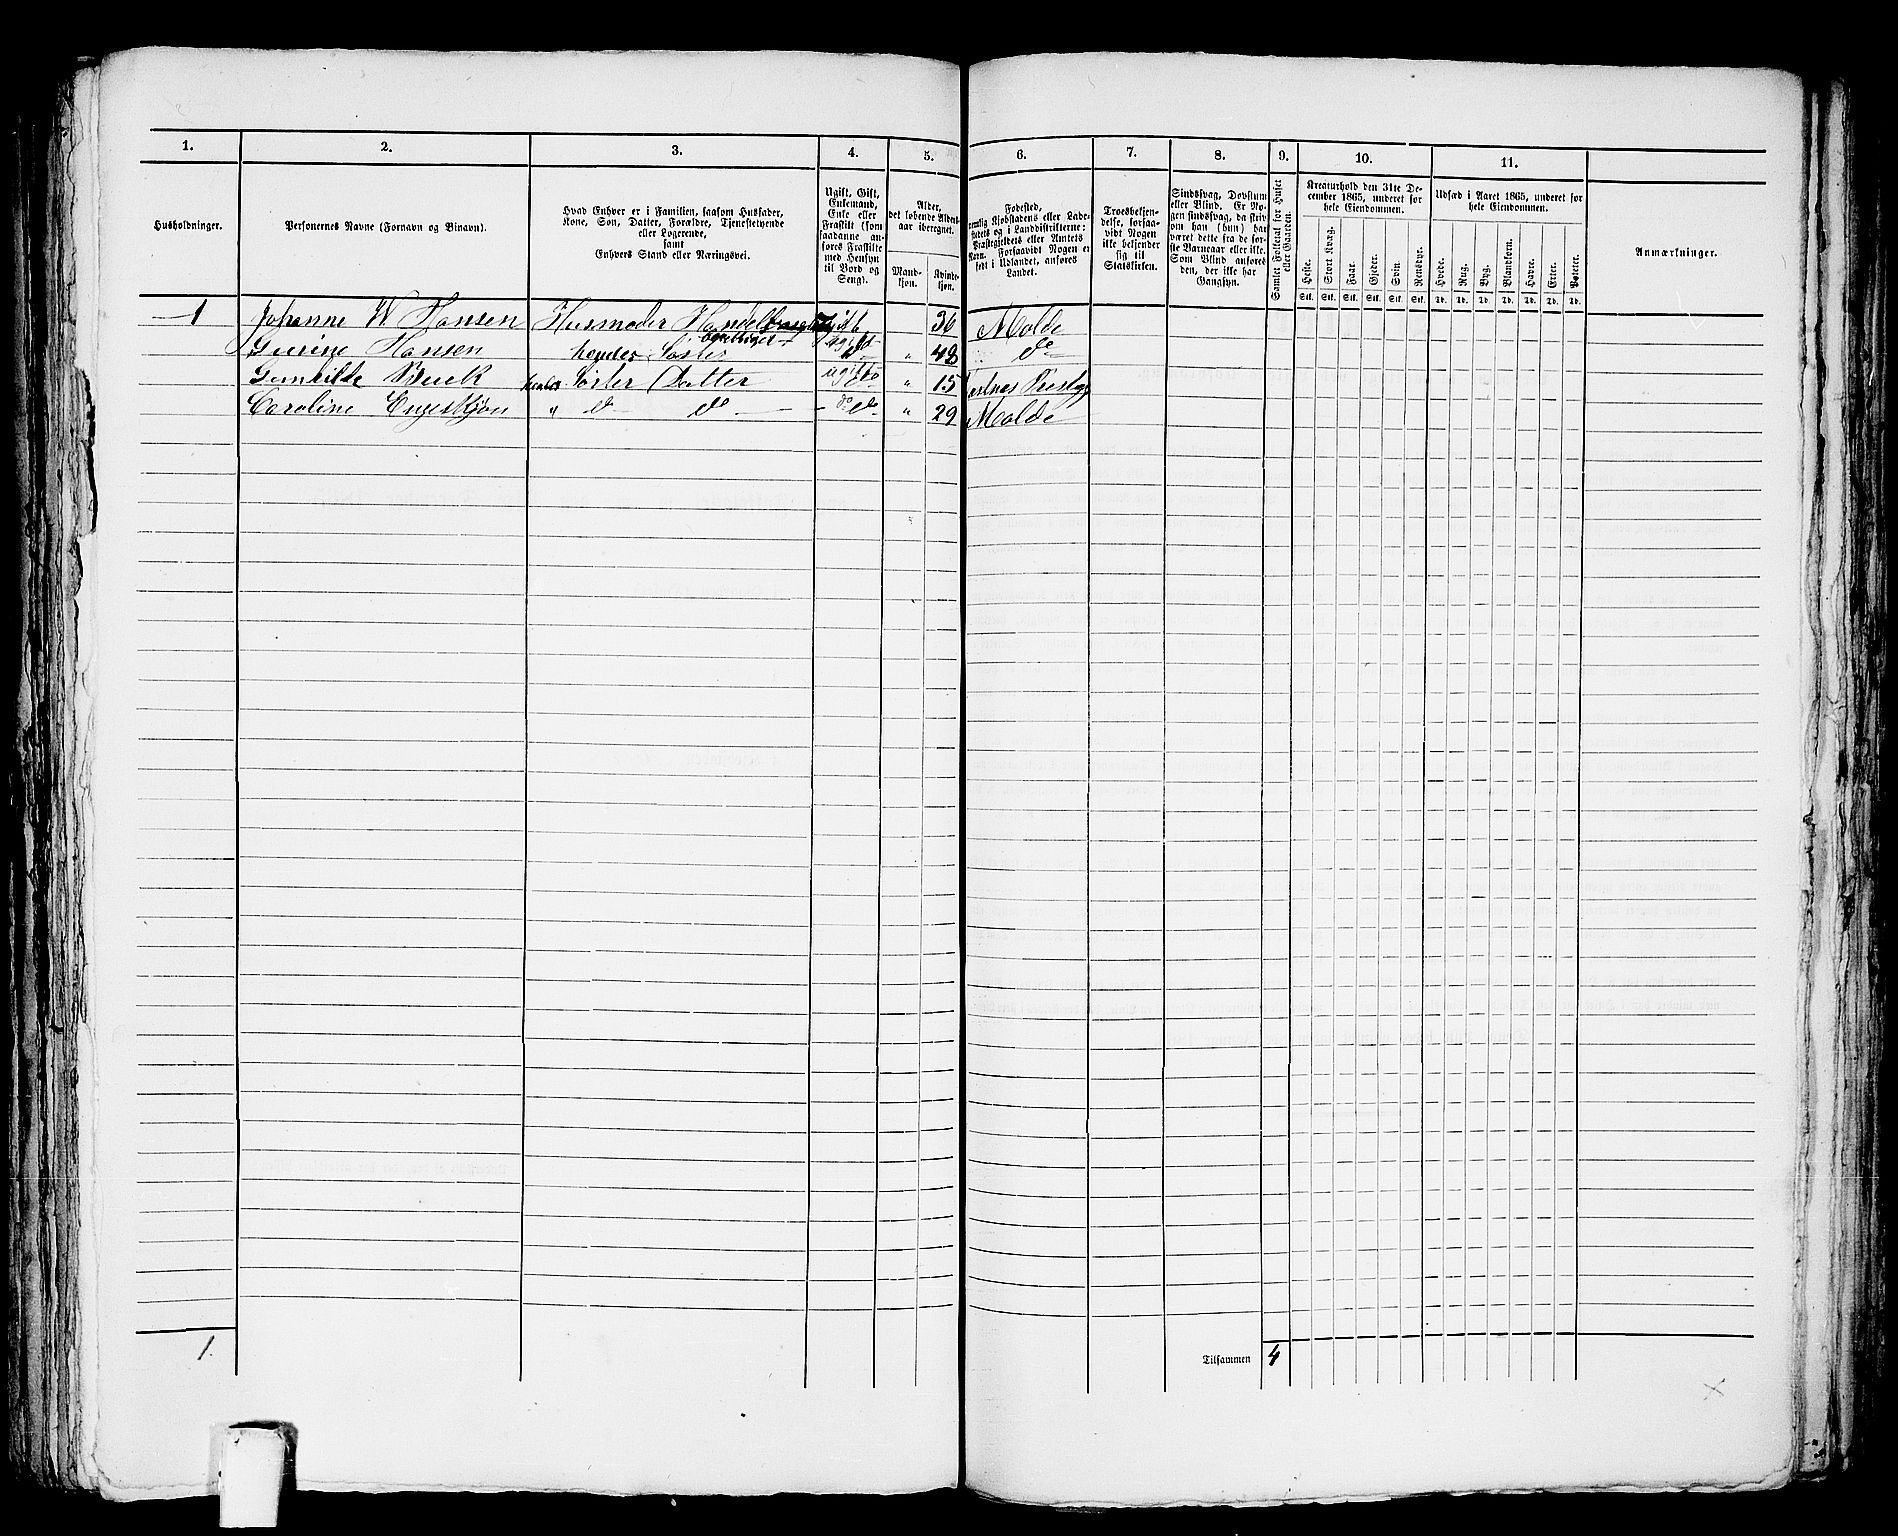 1. 2. 3. 4. 5. 6. 7. 8. 9. 10. 11.
Husholdninger.
Personernes Navne (Fornavn og Binavn).
Hvad Enhver er i Familien, saasom Husfader,
Kone, Søn, Datter, Forældre, Tjenestetyende
eller Logerende,
samt
Enhvers Stand eller Næringsvei.
Ugift, Gift,
Enkemand,
Enke eller
Fraskilt (som
saadanne an-
føres Fraskilte
med Hensyn
til Bord og
Seng).
Alder,
det løbende Alders-
aar iberegnet.
Mand-
kjøn.
Kvinde-
kjøn.
Fødested,
nemlig Kjøbstadens eller Lade-
stedets og i Landdistrikterne:
Præstegjeldets eller Amtets
Navn. Forsaavidt Nogen er
født i Udlandet, anføres
Landet.
Troesbekjen-
delse, forsaa-
vidt Nogen
ikke bekjender
sig til
Statskirken.
Sindssvag, Døvstum
eller Blind. Er No-
gen sindssvag, da skriv
om han (hun) har
været dette fra de før-
ste Barneaar eller ikke.
Som Blind anføres
den, der ikke har
Gangsyn.
Samlet Folketal for Huset
eller Gaarden.
Kreaturhold den 31te De-
cember 1865, underet for
hele Eiendommen.
Heste. Stort Kvæg. Faar. Gjeder. Svin. Rensdyr.
Stk. Stk. Stk. Stk. Stk. Stk.
Udsæd i Aaret 1865, underet for
hele Eiendommen.
Hvede. Rug. Byg. Blandkorn. Havre. Erter. Poteter.
Td. Td. Td. Td. Td. Td. Td.
Anmærkninger.
1 Johanne W Hansen Husmoder 36 Molde
Hansen Søster 48 do
Buck Søster Datter ugift " 15
Caroline Engeskjøn " do do do " 29 Molde
1.
Tilsammen 4